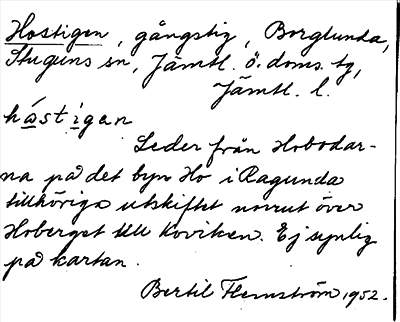 Hostigen, gångstig, Borglunda,
Stuguns sn, Jämtl. ö. doms. tg,
Jämtl. l.
håstigan
Leder från Hobodar-
na på det byn Ho i Ragunda
tillhöriga utskiftet norrut över
Hoberget till Koviken. Ej synlig
på kartan.
Bertil Flemström 1952.